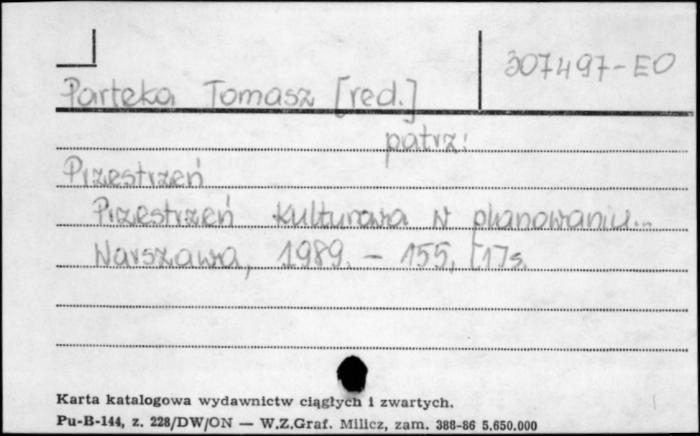 307497-EO
Parteka Tomasz [red.]
patrz:
Przestrzeń
Przestrzeń kulturowa w planowaniu...
Warszawa, 1989. - 155, [1] s.
Karta katalogowa wydawnictw ciągłych i zwartych.
Pu-B-144, z. 228/DW/ON — W.Z.Graf. Milicz, zam. 388-86 5.650.000